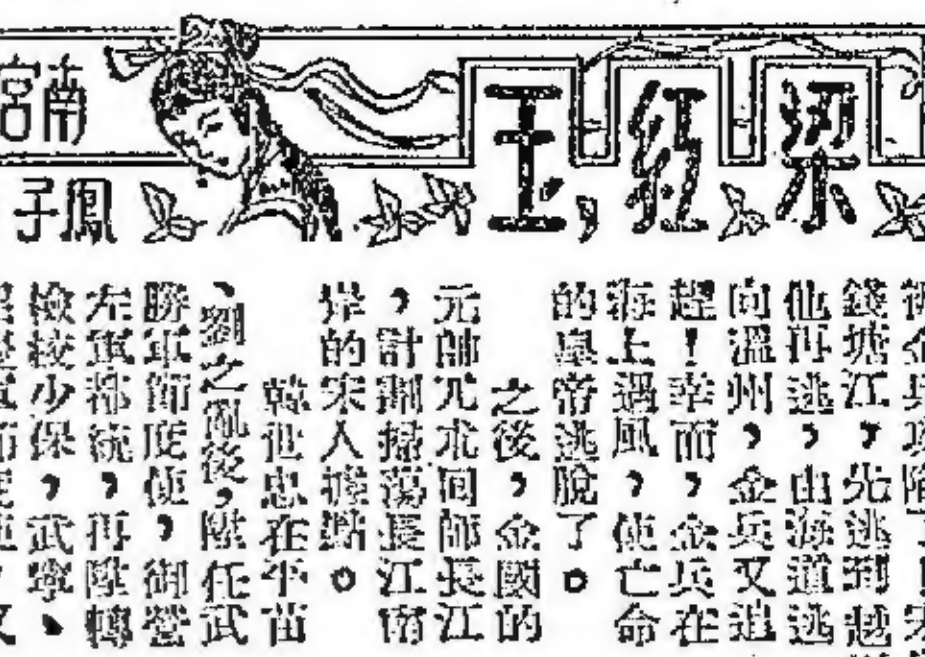 梁紅玉
南宮
鳳子
錢塘江，先逃到越
他再逃，由海道逃
向溫州，金兵又追
趕！幸而，金兵在
海上遇風，使亡命
的皇帝逃脫了。
之後，金國的
元帥兀朮回師長江
，計劃掃蕩長江南
岸的宋人據點。
韓世忠在平苗
、劉之亂後，陞任武
勝軍節度使，御營
左軍都統，再陞轉
檢校少保，武寧、